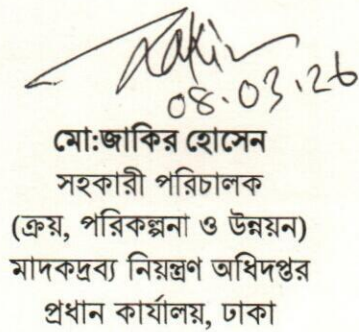 Zakir
08.03.26
মো:জাকির হোসেন
সহকারী পরিচালক
(ক্রয়, পরিকল্পনা ও উন্নয়ন)
মাদকদ্রব্য নিয়ন্ত্রণ অধিদপ্তর
প্রধান কার্যালয়, ঢাকা